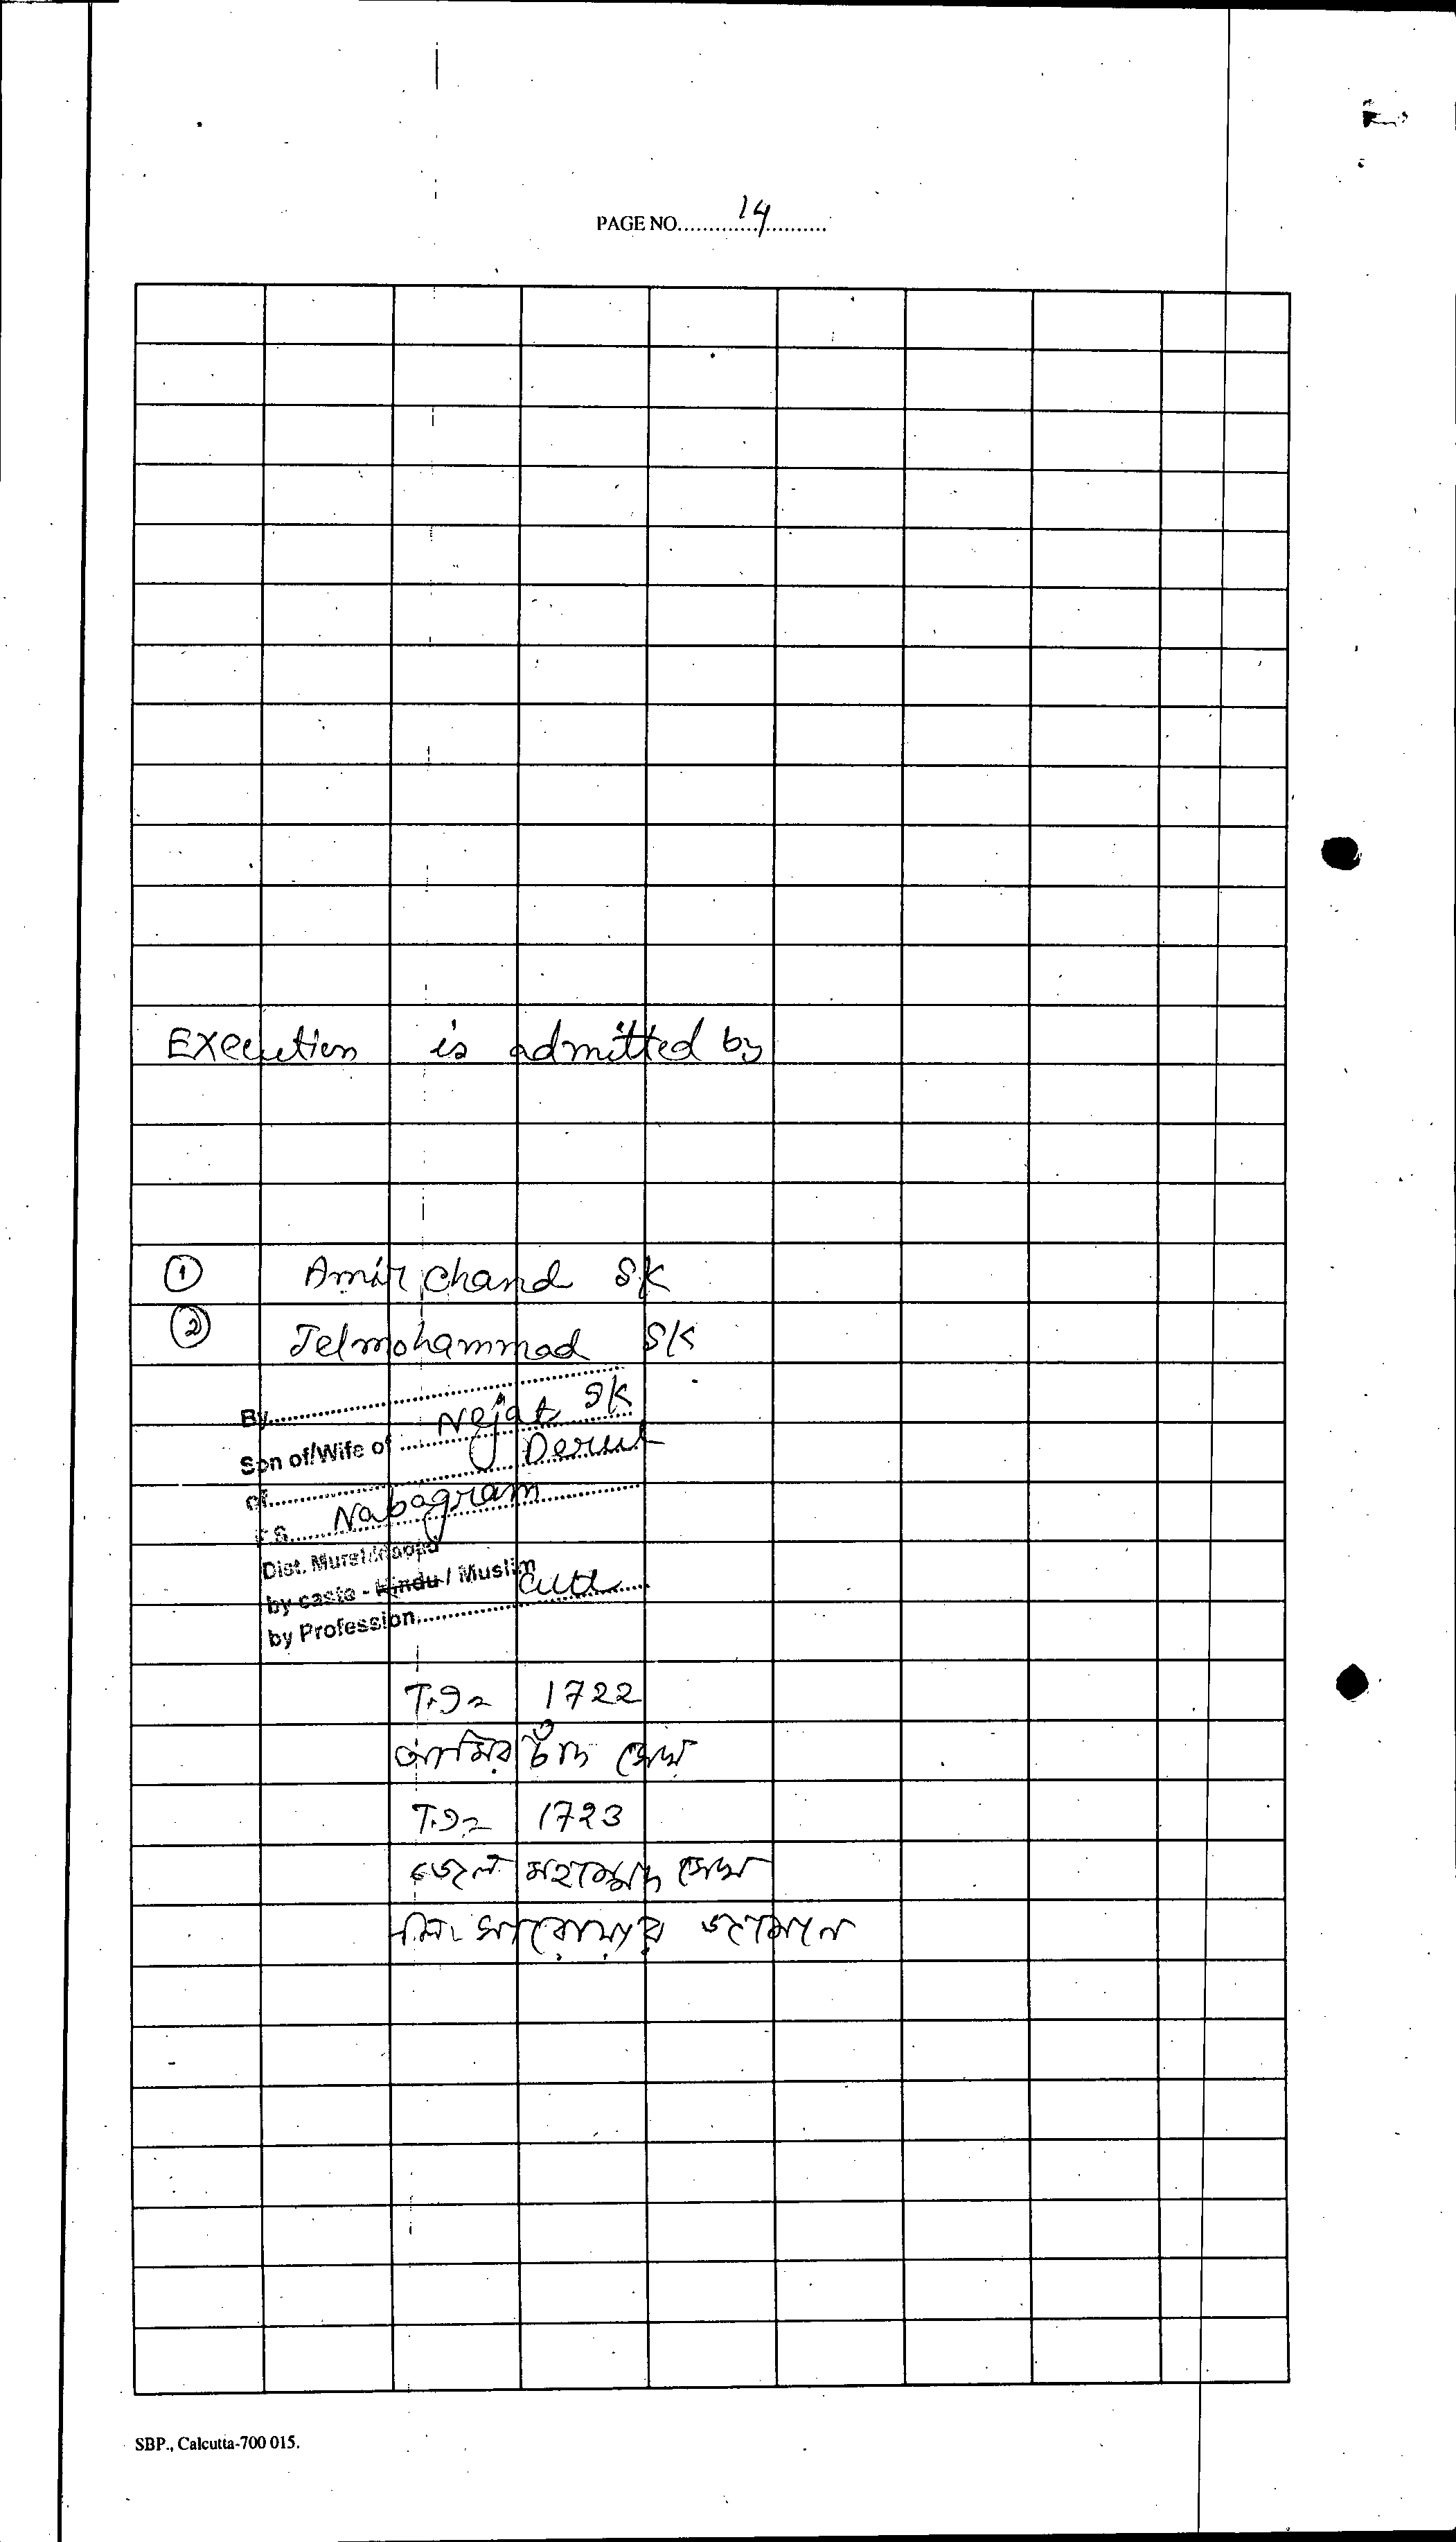 PAGE NO. 14
Execution is admitted by
① Amir Chand SK
② Jelmohammad SK
By
Son of/Wife of Nejat SK
of Derul
P.S. Nabagram
Dist. Murshidabad
by caste - Hindu / Muslim
by Profession Cult
1722
আমির চাঁদ সেখ
1723
জেল মহাম্মদ সেখ
SBP., Calcutta-700 015.